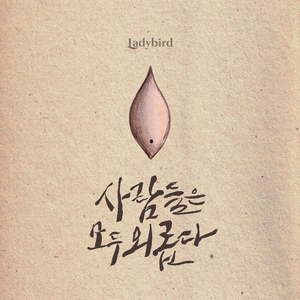 Ladybird
사람들은
모두 외롭다